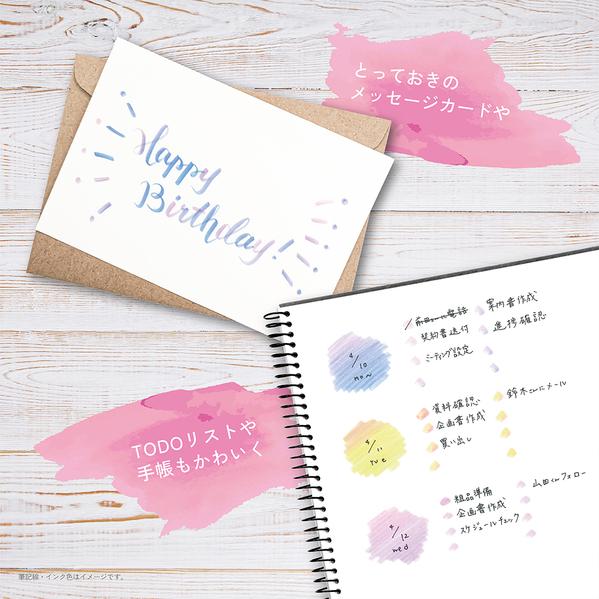 とっておきの
メッセージカードや
Happy
Birthday!
TODOリストや
手帳もかわいく
4/10
mon
契約書送付
ミーティング設定
案内書作成
進捗確認
4/11
tue
資料確認
企画書作成
買い出し
鈴木さんにメール
4/12
wed
粗品準備
企画書作成
スケジュールチェック
山田くんフォロー
筆記線・インク色はイメージです。